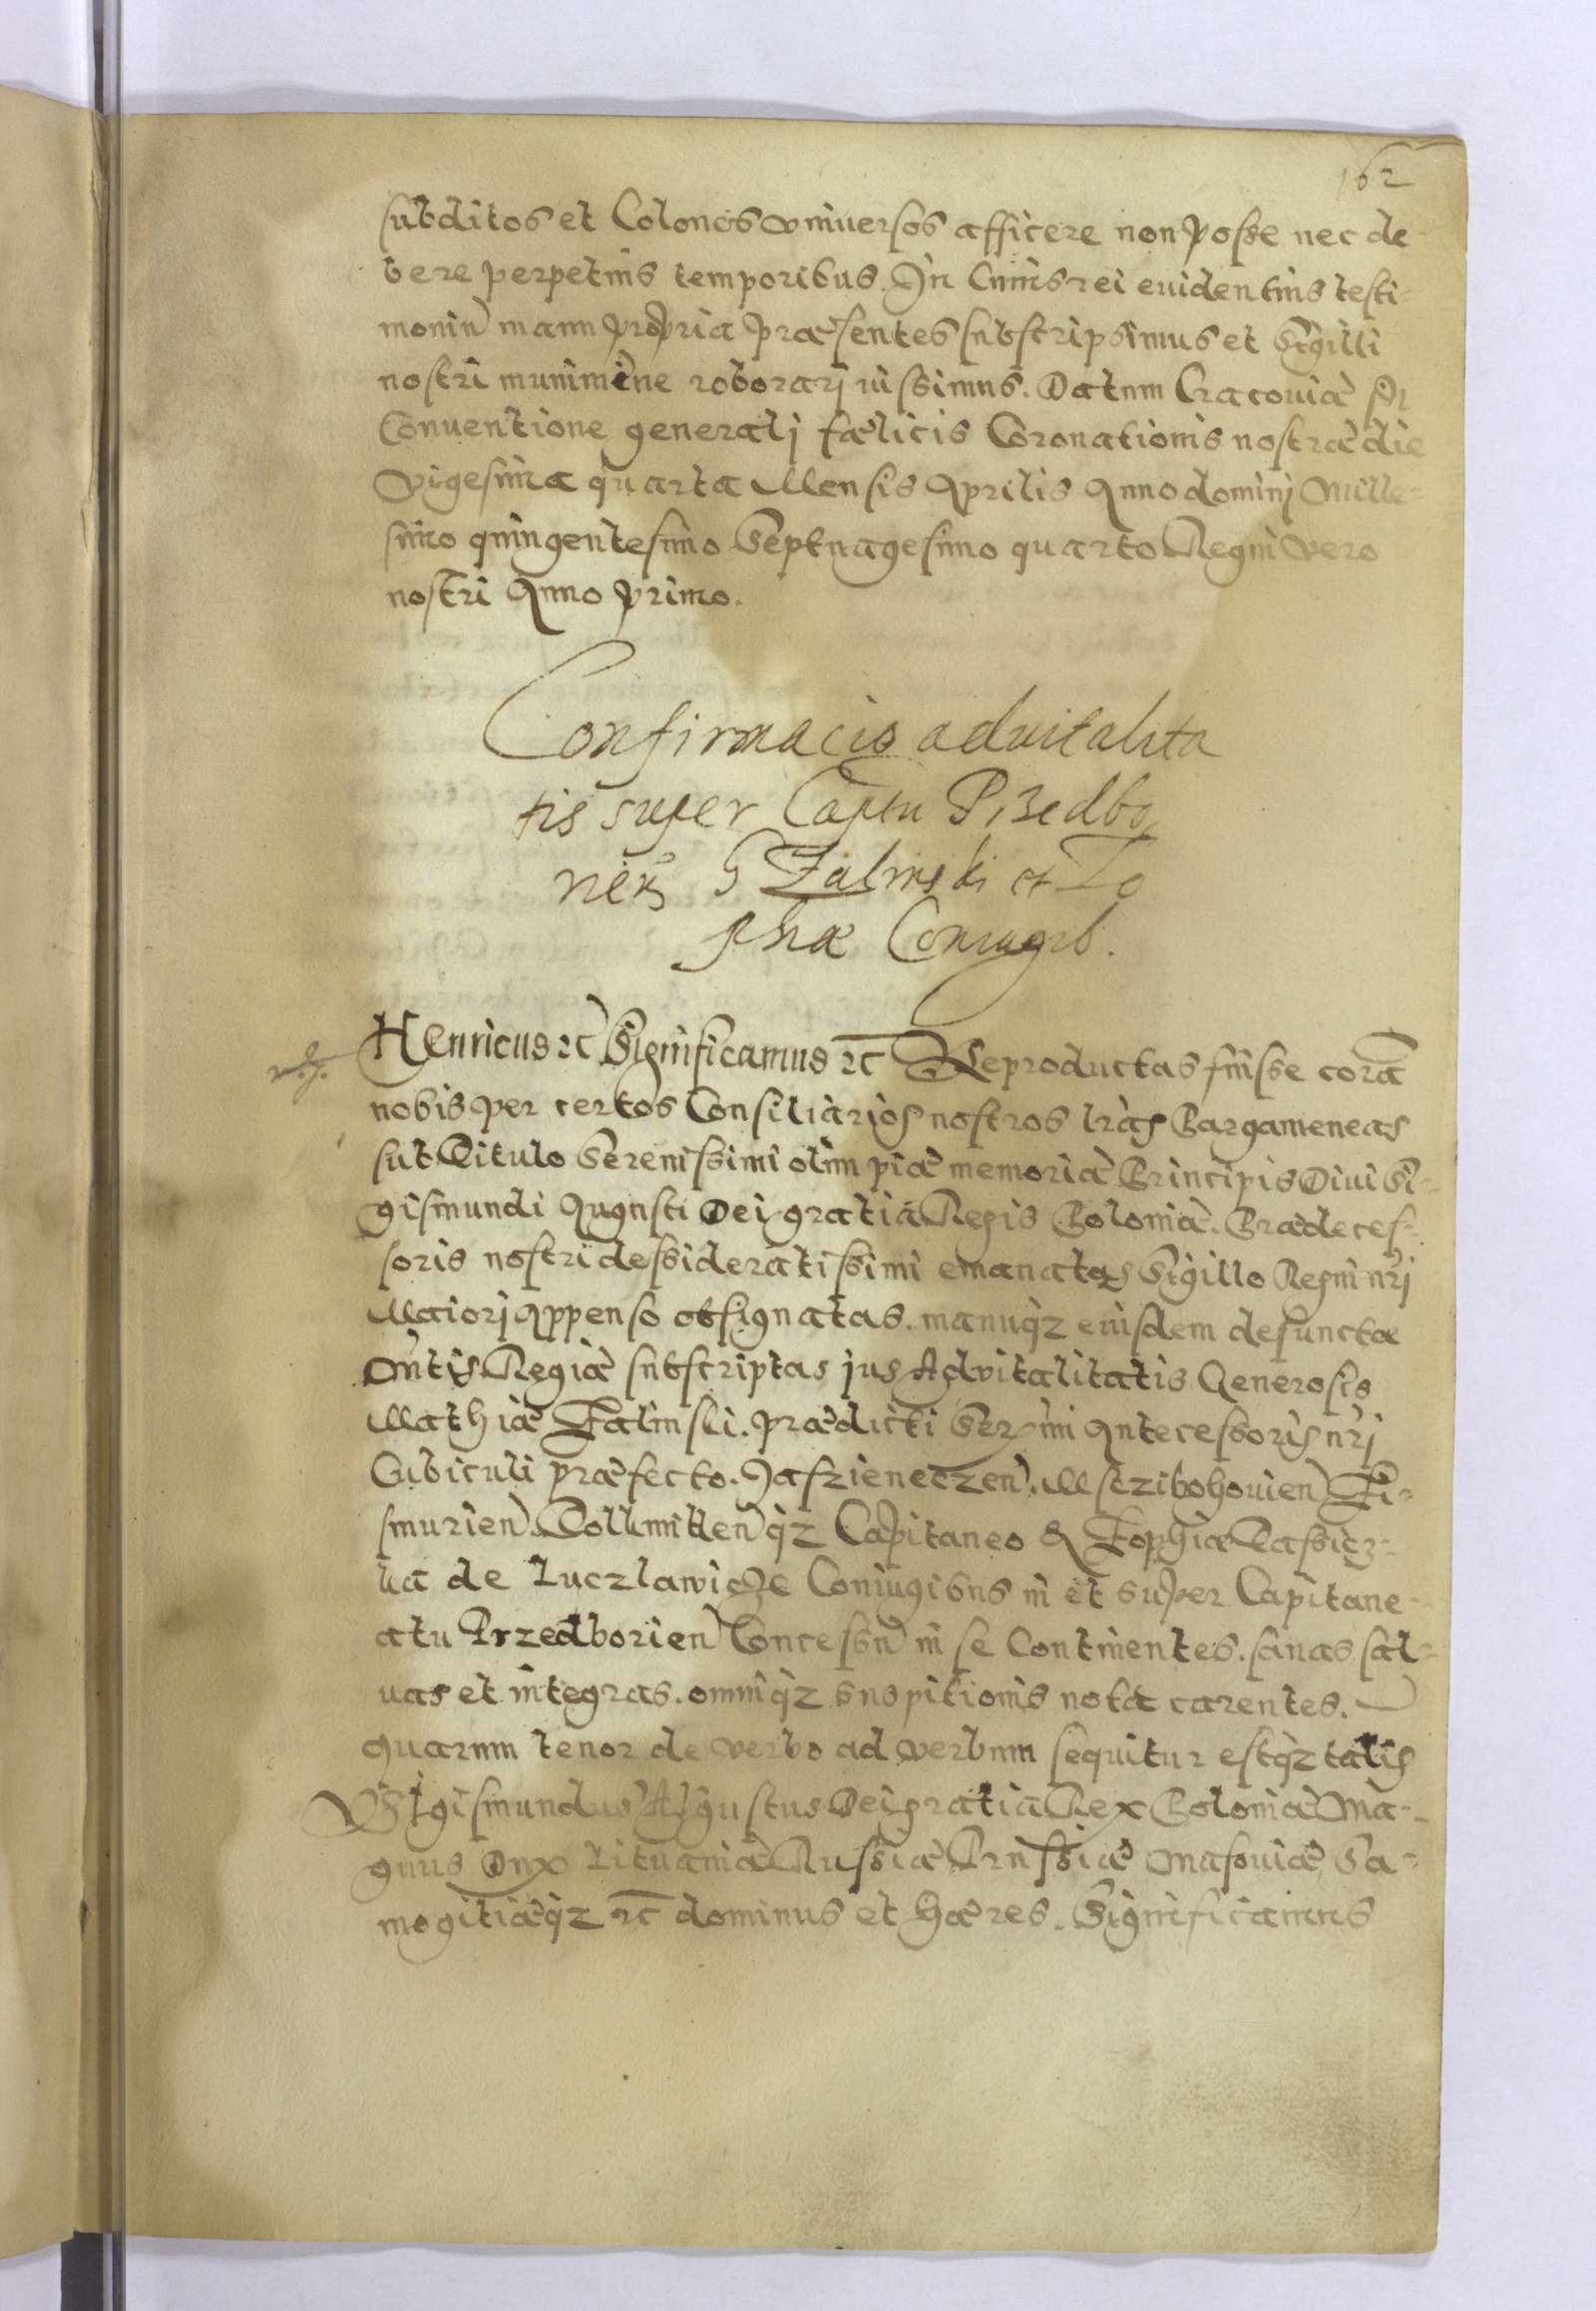 162
subditos et Colonos vniuersos afficere non posse nec de-
bere perpetuis temporibus. In Cuius rei euidentius testi-
moniu manu propria præsentes subscripsimus et Sigilli
nostri munimine roborarj iussimus. Datum Cracouiæ In
Conuentione generalj fælicis Coronationis nostræ die
Vigesima quarta Mensis Aprilis Anno dominj Mille-
simo quingentesimo Septuagesimo quarto Regni vero
nostri Anno primo.
Confirmacio aduitalita
tis super Captu Przedbo
rien G Zalinski et Zo
phiæ Coniugib.
Henricus etc Significamus etc Reproductas fuisse cora
nobis per certos Consiliarios nostros lras Pargameneas
sub Titulo Serenissimi olim piæ memoriæ Principis Diui Si-
gismundi Augusti Dei gratia Regis Poloniæ. Prædeces-
soris nostri dessideratissimi emanatas Sigillo Regni nrj
Maiorj Appenso obsignatas. manuqz eiusdem defunctæ
Mntis Regiæ subscriptas jus Aduitalitatis Generosis
Mathiæ Zalinski. prædicti Sermi Antecessoris nrj
Cubiculi præfecto. Jaszieneczen. Msczibohouien Zi-
smurien. Tollmitlen qz Capitaneo & Zophiæ Tassicz-
ka de Luczlawicze Coniugibus in et super Capitane-
atu Przedborien Concessu in se Continentes. sanas sal-
uas et integras. omniqz suspitionis nota carentes.
quarum tenor de verbo ad verbum sequitur estqz talis
Sigismundus Augustus Dei gratia Rex Poloniæ Ma-
gnus Dux Lituaniæ Russiæ Prussiæ Masouiæ Sa-
mogitiæqz etc dominus et Hæres. Significamus